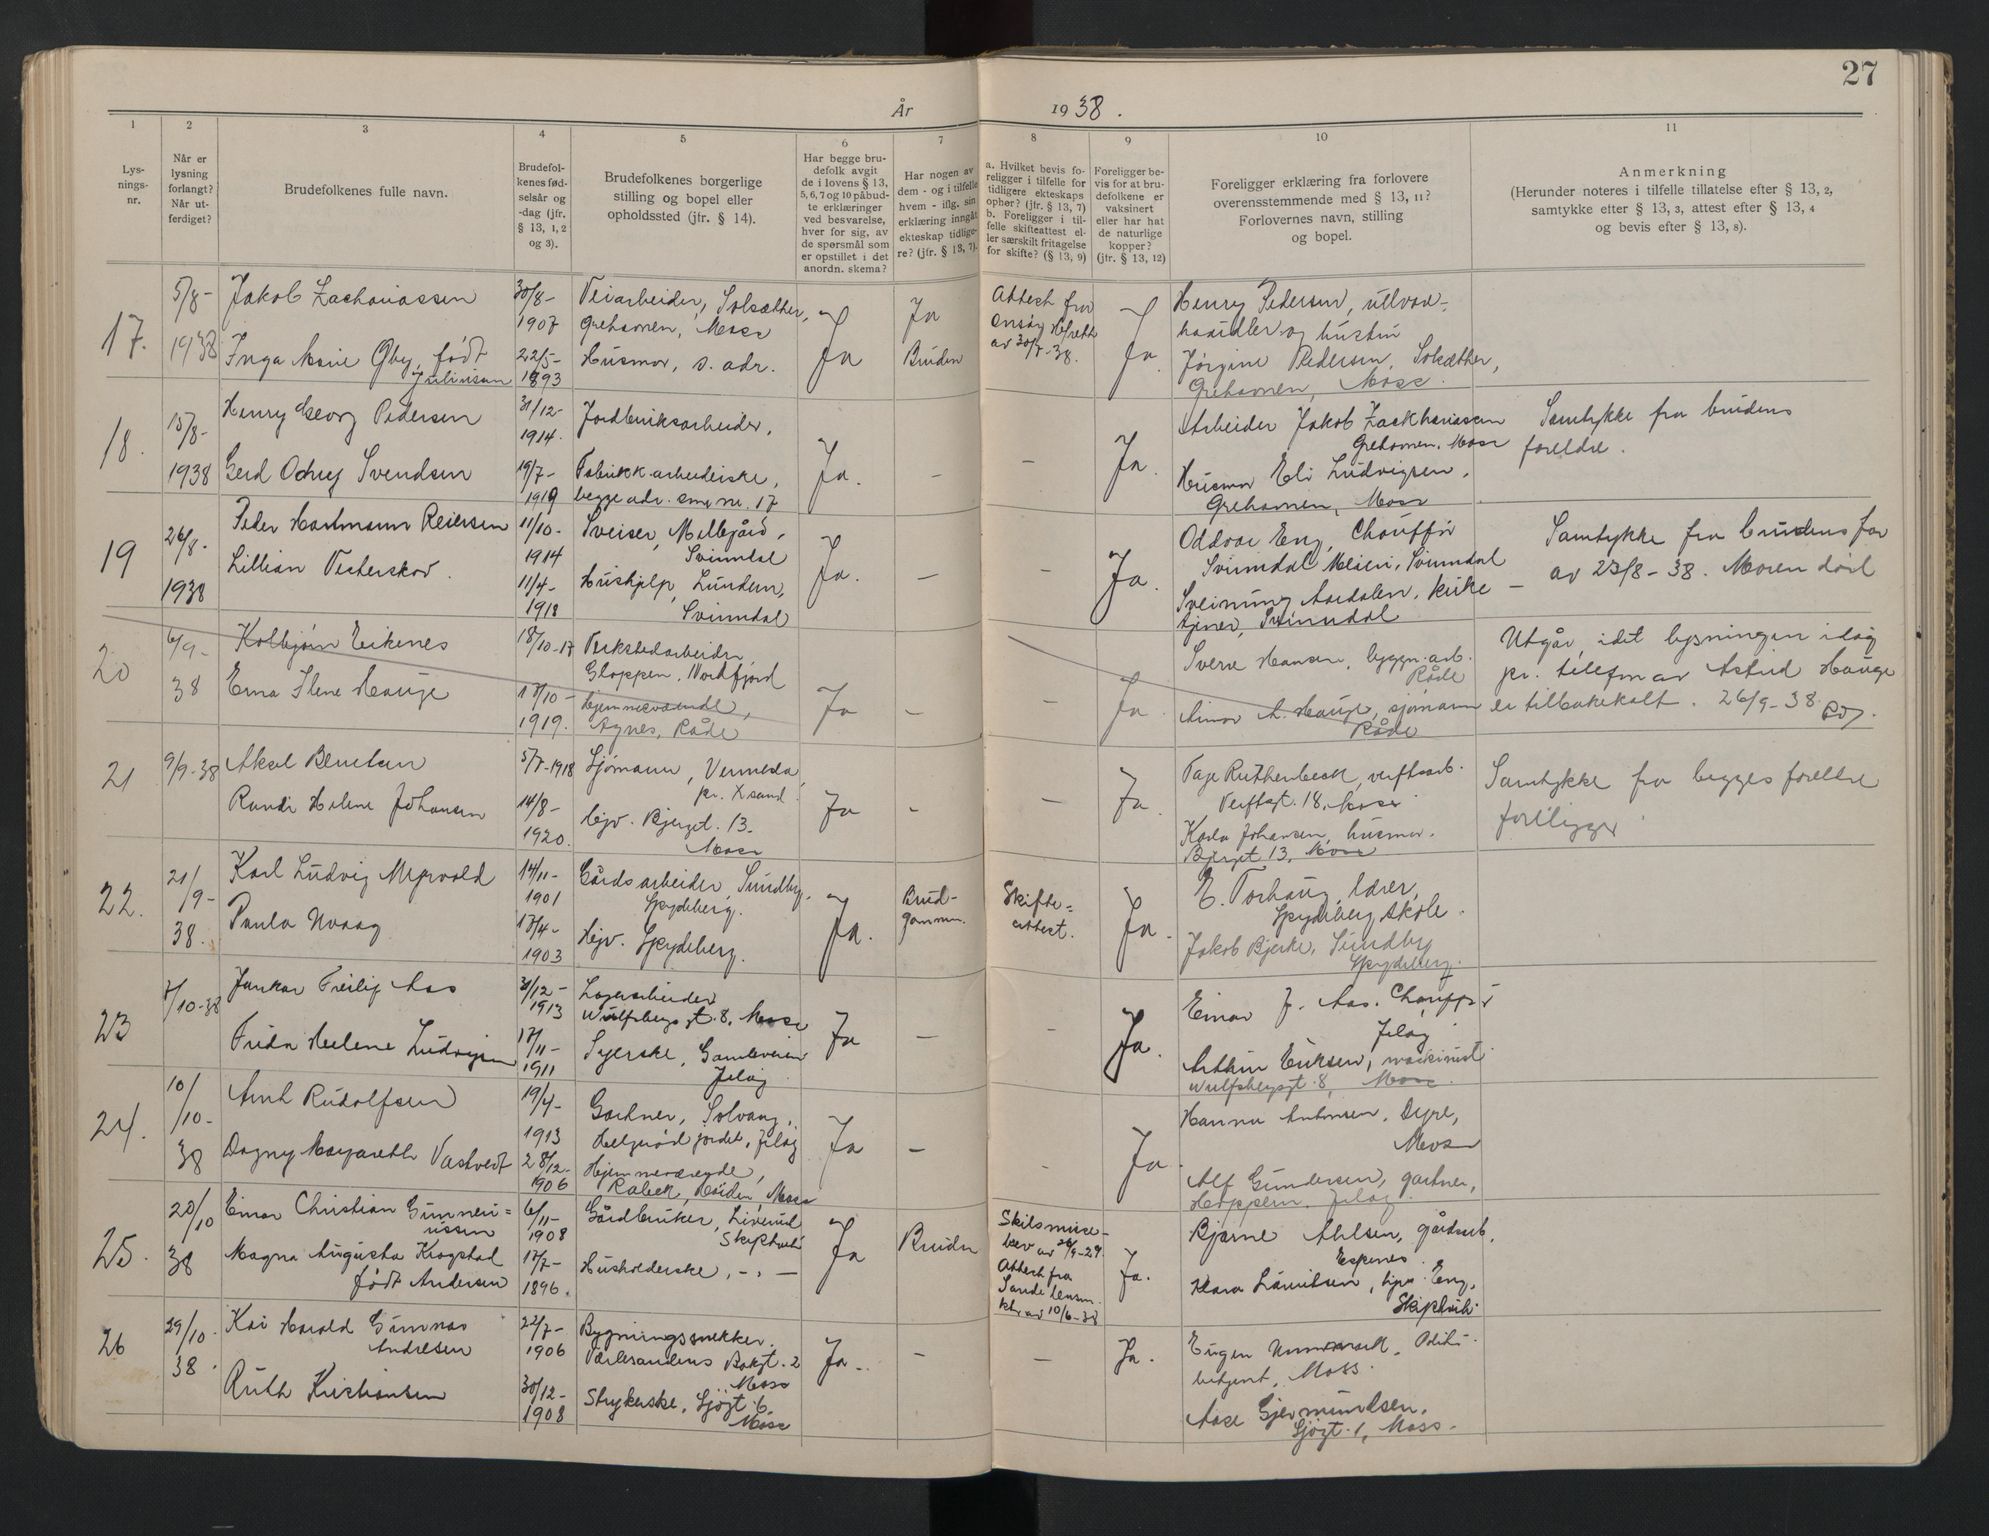 27
År 1938.
1 2 3 4 5 6 7 8 9 10 11
Lys-
nings-
nr.
Når er
lysning
forlangt?
Når ut-
ferdiget?
Brudefolkenes fulle navn.
Brudefol-
kenes fød-
selsår og
-dag (jfr.
§ 13, 1, 2
og 3).
Brudefolkenes borgerlige
stilling og bopel eller
opholdssted (jfr. § 14).
Har begge bru-
defolk avgit
de i lovens § 13,
5, 6, 7 og 10 påbud-
te erklæringer
ved besvarelse,
hver for sig, av
de spørsmål som
er opstillet i det
anordn. skema?
Har nogen av
dem - og i tilfelle
hvem - iflg. sin
erklæring inngått
ekteskap tidlige-
re? (jfr. § 13, 7).
a. Hvilket bevis fo-
religger i tilfelle for
tidligere ekteskaps
ophør? (jfr. § 13, 7)
b. Foreligger i til-
felle skifteattest el-
ler særskilt fritagelse
for skifte? (§ 13, 9)
Foreligger be-
vis for at bru-
defolkene er
vaksinert
eller har hat
de naturlige
kopper?
(jfr. § 13, 12)
Foreligger erklæring fra forlovere
overensstemmende med § 13, 11?
Forlovernes navn, stilling
og bopel.
Anmerkning
(Herunder noteres i tilfelle tillatelse efter § 13, 2,
samtykke efter § 13, 3, attest efter § 13, 4
og bevis efter § 13, 8).
17.
5/8-
1938
Jakob Zachariassen
Inga Marie Øby, født
Juliussen
30/8-
1907
22/5-
1893
Veiarbeider, Solsæther,
Grehamen, Moss
Husmor, s. adr.
Ja
Ja
Ja
Bruden
Attest fra
Onsøy
av 30/7-38.
Ja
Henry Pedersen,
handler og hustru
Jørgine Pedersen, Solsæther,
Grehamen, Moss.
18.
15/8-
1938
Henry Georg Pedersen
Gerd Svendsen
31/12-
1914.
19/7-
1919
Jordbruksarbeider,
Fabrikkarbeiderske,
begge adr. som nr. 17
Ja.
-
-
Ja.
Arbeider Jakob Zackhariassen
Grehamen, Moss
Husmor Eli Ludvigsen,
Grehamen, Moss
Samtykke fra brudens
foreldre.
19
26/8-
1938
Peder Hartmann Reiersen
Lillian Vesterskov.
11/10-
1914
11/4-
1918
Sveiser, Mellegård,
Svinndal
Hushjelp, Lundern,
Svinndal
Ja.
-
-
Ja.
Oddvar Eng, Chauffør
Svinndal Meieri, Svinndal
Sveinung Aardalen, kirke-
tjener, Svinndal
Samtykke fra brudens far
av 23/8-38. Moren død
20
6/9-
38
Kolbjørn Eikenes
Erna Ilene Hauge
18/10-17
17/10-
1919.
Verkstedarbeider
Gloppen, Nordfjord
Hjemmeværende,
Agnes, Råde
Ja
-
-
Ja
Sverre Hansen, byggn.arb.
Råde
Aimar A. Hauge, sjømann
Råde
Utgår, idet lysningen idag
pr. telefon av Astrid Hauge
er tilbakekalt. 26/9-38.
21
9/9-38
Aksel Berntsen
Randi Helene Johansen
5/7-1918
14/8-
1920.
Sjømann, Vennesla,
pr. Xsand.
Hjv. Bjerget. 13.
Moss
Ja
-
-
Ja.
Tage Ruthenbeck, verftsarb.
Verftsgt. 18, Moss
Karla Johansen, husmor.
Bjerget 13, Moss
Samtykke fra begges foreldre
foreligger
22.
21/
9-
38.
Karl Ludvig Myrvold
Paula Noaag
14/11-
1901
17/4-
1903
Gårdsarbeider, Sundby,
Spydeberg.
Hjv. Spydeberg.
Ja.
Brud-
gommen.
Skifte-
attest.
Ja.
E. Torhaug, lærer,
Spydeberg skole.
Jakob Bjerke, Sundby
Spydeberg.
23
7/10-38
Junkar Aas
Frida Helene Ludvigsen
31/12-
1913
17/11-
1911
Lagerarbeider
Wulfsbergsgt. 8, Moss
Syerske, Gamleveien
Jeløy
Ja
-
-
Ja.
Einar J. Aas. Chauffør
Jeløy
Arthur Eriksen, maskinist
Wulfsbergsgt. 8, Moss.
24.
10/
10-
38
Arnt Rudolfsen
Dagny Margareth Vastvedt
19/4-
1913
28/12-
1906
Gartner, Solvang,
Helgerødjordet, Jeløy
Hjemmeværende,
Rabek, Høiden, Moss
Ja
-
-
Ja.
Hanna Antonsen, Dyre,
Moss
Alf Gundersen, gartner,
Hoppern, Jeløy.
25.
20/10
38
Einar Christian Gunneri-
ussen
Magna Augusta Krogstad
født Andersen
6/11-
1908
17/7-
1896.
Gårdbruker, Liverud
Skiptvedt
Husholderske, -"-
Ja
Bruden
Skilsmisse-
bev av 26/9-29.
Attest fra
Sande lensm.
ktr. av 10/6-38
Ja.
Bjarne Ahlsen, gårdsarb.
Espenes.
Klara Lauritsen, hjv. Eng,
Skiptvedt
26
29/10.
38.
Kai Harald Gunnar
Andresen
Ruth Kristiansen
22/7-
1906
30/12-
1908
Bygningssnekker.
Værlesandens Bakgt. 2
Moss
Strykerske, Sjøgt. 6.
Moss
Ja.
-
-
Ja.
Eugen Politi-
betjent, Moss.
Aase Gjermundsen.
Sjøgt. 1, Moss.